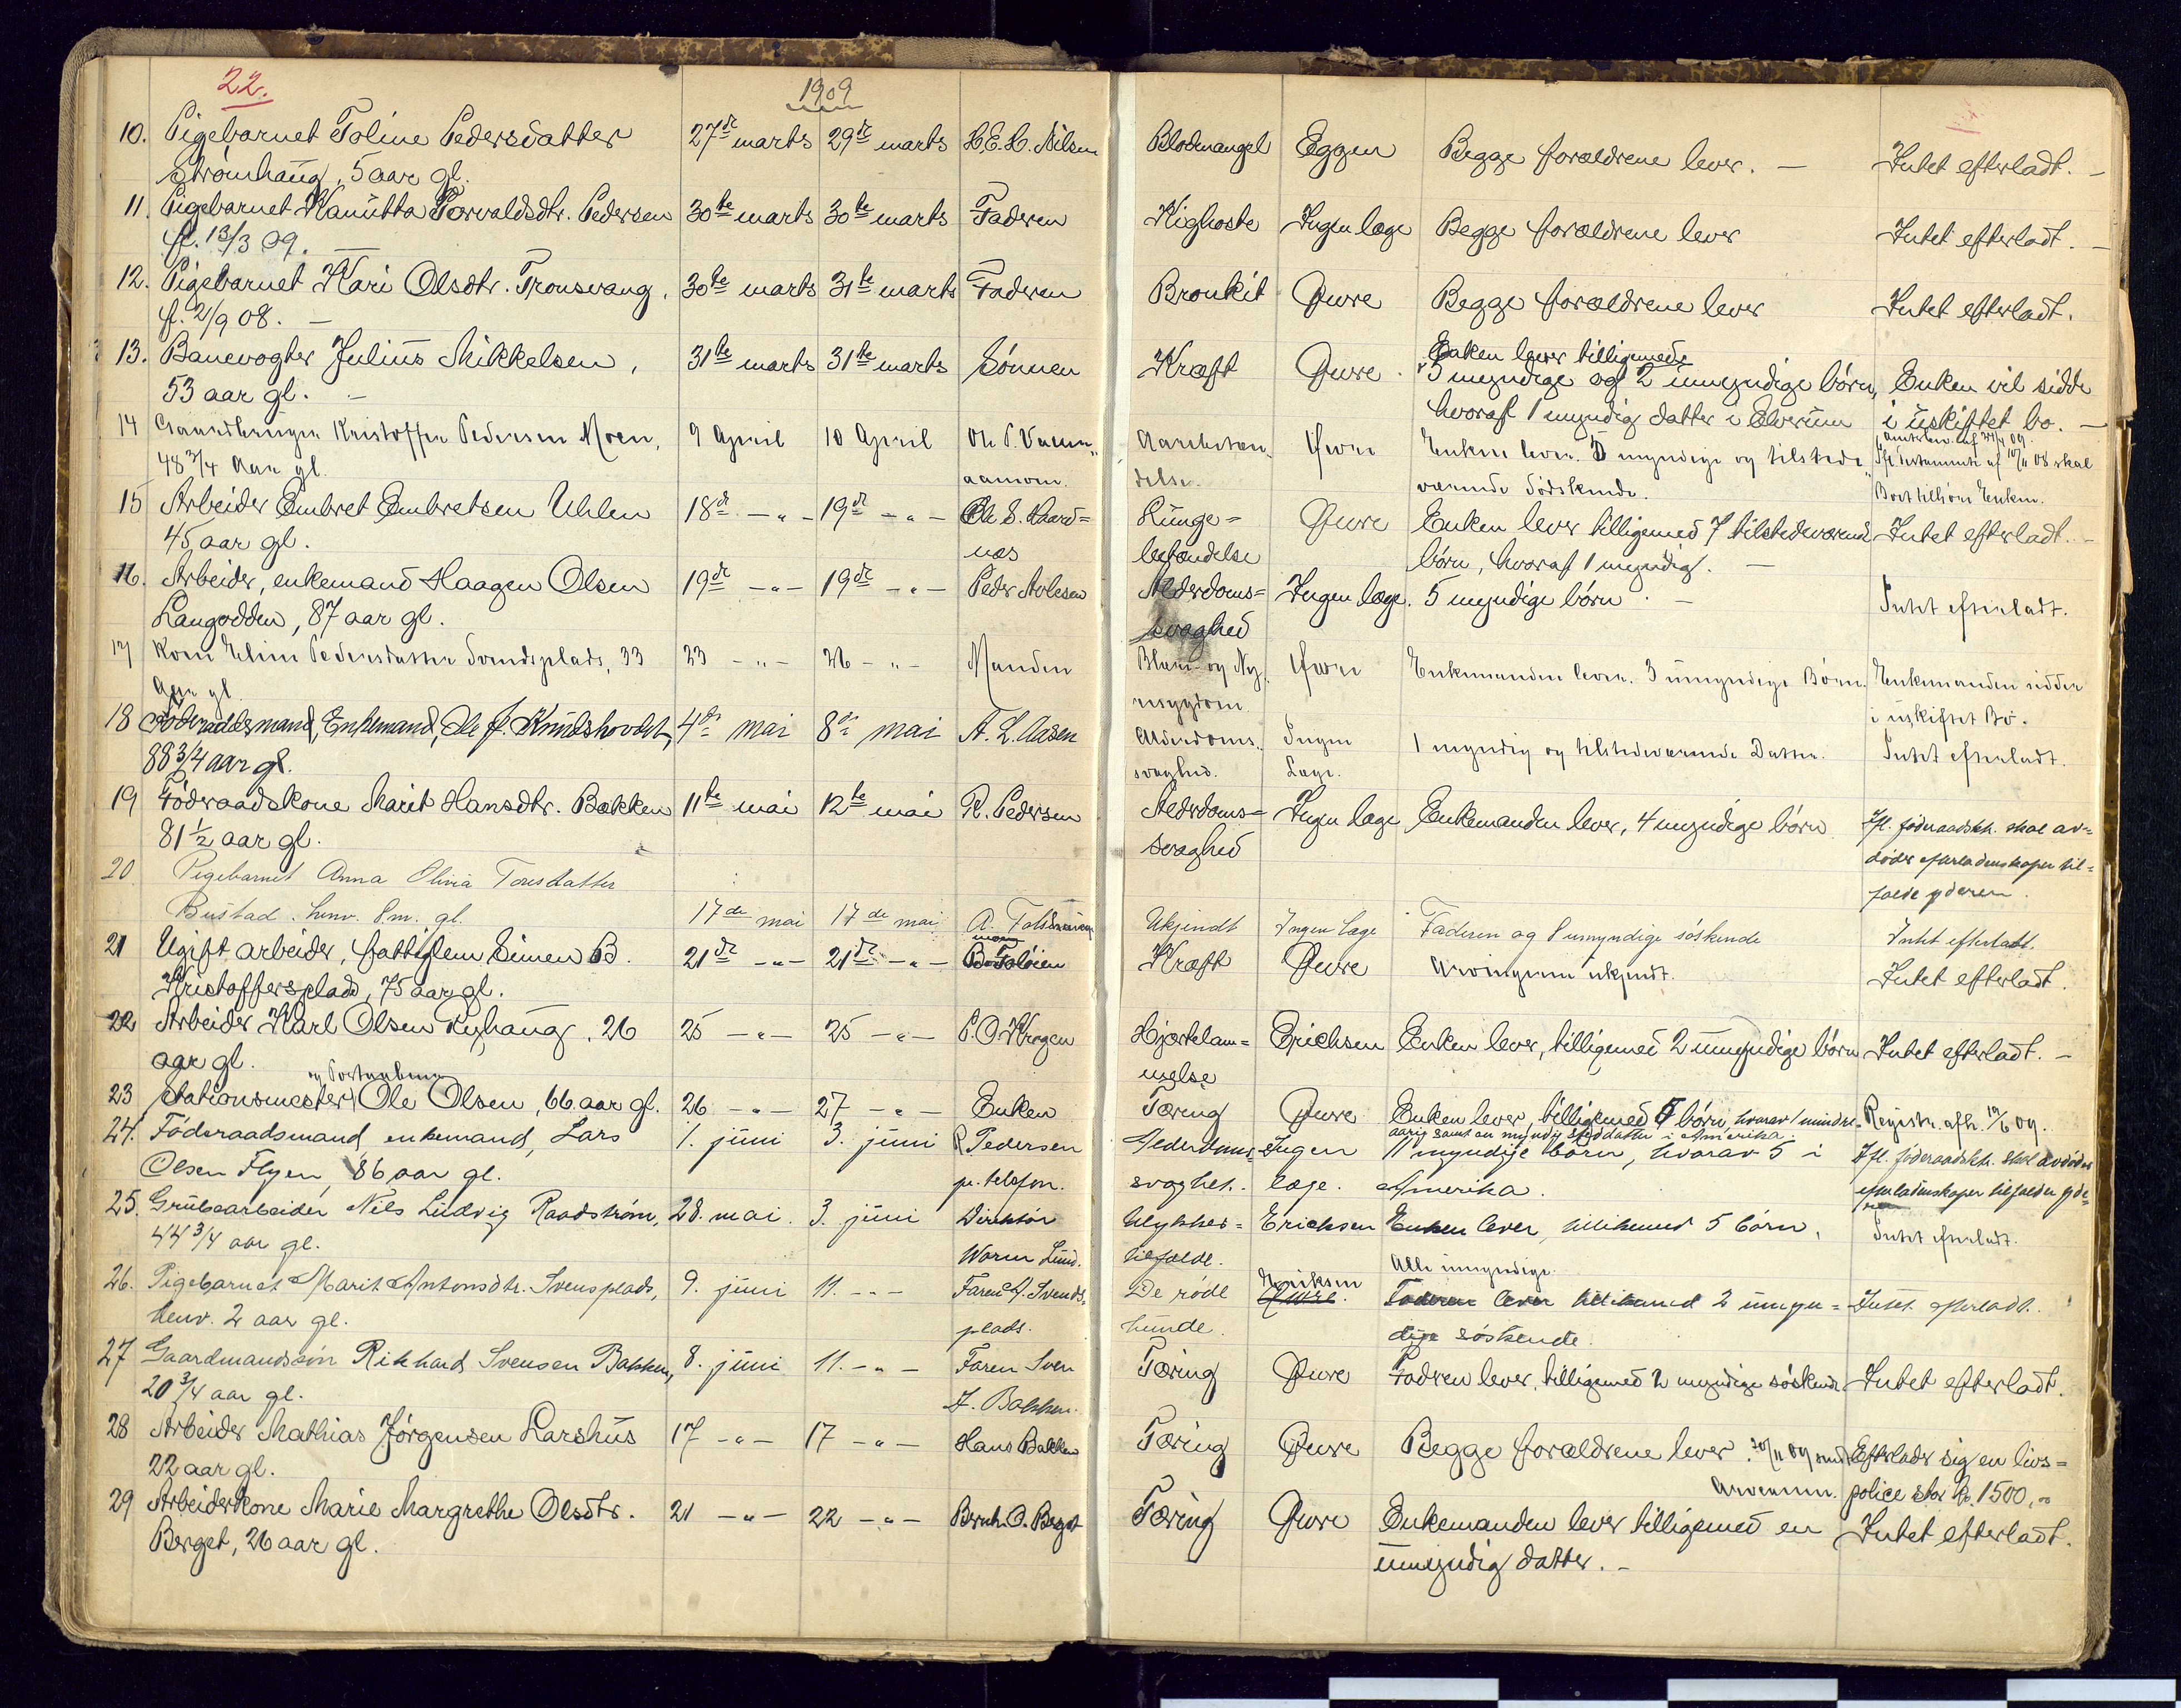 22.
1909
10. Pigebarnet Toline Pedersdatter 27de marts 29de marts H.E.H. Nilsen Blodmangel Eggen Begge forældrene lever. — Intet efterladt. —
Strømhaug, 5 aar gl.
11. Pigebarnet Kanutta Torvaldsdtr. Pedersen 30te marts 30te marts Faderen Kighoste Ingen læge Begge forældrene lever Intet efterladt. —
f. 13/3 09.
12. Pigebarnet Kari Olsdtr. Tronsvang. 30te marts 31te marts Faderen Bronkit Qure Begge forældrene lever Intet efterladt.
f. 2/9 08. —
Enken lever tilligemed
13. Banevogter Julius Mikkelsen, 31te marts 31te marts Sønnen Kræft Qure. 5 myndige og 2 umyndige børn, Enken vil sidde
53 aar gl. — hvoraf 1 myndig datter i Elverum i uskiftet bo. —
14 Gaardbruger Kristoffer Pedersen Moen, 9 April 10 April Ole P. Qure Enken lever. 5 myndige og tilstede
48 3/4 Aar gl. aamoen. delse. værende Södskende. Ifl. testamente af 10/11 08 skal
Boet tilhøre Enken.
15 Arbeider Embret Embretsen Uhlen 18de —"— 19de —"— Ole S. Haard= Lunge= Qure Enken lever tilligemed 7 tilstedeværende Intet efterladt. —
45 aar gl. næs betændelse børn, hvoraf 1 myndig. —
16. Arbeider, enkemand Haagen Olsen 19de —"— 19de —"— Peder Avlesen Alderdoms= Ingen læge. 5 myndige børn. — Intet efterladt.
Langodden, 87 aar gl. svaghed
17 Kone Eline Pedersdatter Svendsplads, 33 23 —"— 26 —"— Manden Blære- og Ny- Qure Enkemanden lever. 3 umyndige Børn. Enkemanden sidder
Aar gl. resygdom. i uskiftet Bo.
18 Föderaadsmand, Enkemand, Ole J. Knudshovdet, 4de mai 8de mai A. L. Aasen Alderdoms- Ingen 1 myndig og tilstedeværende Datter. Intet efterladt.
88 3/4 aar gl. svaghed. Læge.
19 Föderaadskone Marit Hansdtr. Bakken 11te mai 12te mai R. Pedersen Alderdoms= Ingen læge Enkemanden lever, 4 myndige børn Ifl. föderaadskk. skal av=
81 1/2 aar gl. svaghed dødes efterladenskaper til=
falde yderen.
20 Pigebarnet Anna Olivia Toresdatter
Bustad. henv. 8 m. gl. 17de mai 17de mai A. Ukjendt Ingen læge Faderen og 8 umyndige söskende Intet efterladt.
21 Ugift arbeider, fattiglem Simen B. 21de —"— 21de —"— B. Toløien Kræft Qure Arvingerne ukjendt. Intet efterladt.
Kristoffersplads, 75 aar gl.
22 Arbeider Karl Olsen Ryhaug, 26 25 —"— 25 —"— P.O. Krogen Hjertelam= Erichsen Enken lever, tilligemed 2 umyndige børn Intet efterladt. —
aar gl. melse
og Postaabner
23 Stationsmester Ole Olsen, 66 aar gl. 26 —"— 27 —"— Enken Tæring Qure Enken lever, tilligemed 7 børn, hvorav 1 mindre- Registr. afh. 19/6 09.
aarig samt en myndig steddatter i Amerika.
24. Föderaadsmand, enkemand, Lars 1. juni 3. juni R Pedersen Alderdoms- Ingen 11 myndige børn, hvorav 5 i Ifl. föderaadskk. skal avdödes
Olsen Flyen, 86 aar gl. pr. telefon. svaghet. læge. Amerika. efterladenskaper tilfalde yde-
25. Grubearbeider Nils Ludvig Raadström, 28. mai. 3. juni Direktør Ulykkes= Erichsen Enken lever, tillikemed 5 børn, Intet efterladt.
44 3/4 aar gl. Worm Lund. tilfælde. Alle umyndige.
26. Pigebarnet Marit Antonsdtr. Svensplads, 9. juni 11. —"— Faren A. Svends- De røde Eriksen Qure. Faderen lever tillikemed 2 umyn= Intet efterladt.
henv. 2 aar gl. plads. hunde. dige söskende.
27 Gaardmandssøn Rikhard Svensen Bakken, 8. juni 11. —"— Faren Sven Tæring Qure Fadren lever, tilligemed 2 myndige söskende Intet efterladt.
20 3/4 aar gl. J. Bakken.
28 Arbeider Mathias Jørgensen Larshus 17 —"— 17 —"— Hans Bakken Tæring Qure Begge forældrene lever. 30/11 09 Efterlader sig en livs=
22 aar gl. Arverne. police stor kr. 1500,00
29 Arbeiderkone Marie Margrethe Olsdtr. 21 —"— 22 —"— Bernh. O. Berget Tæring Qure Enkemanden lever tilligemed en Intet efterladt.
Berget, 26 aar gl. umyndig datter. —